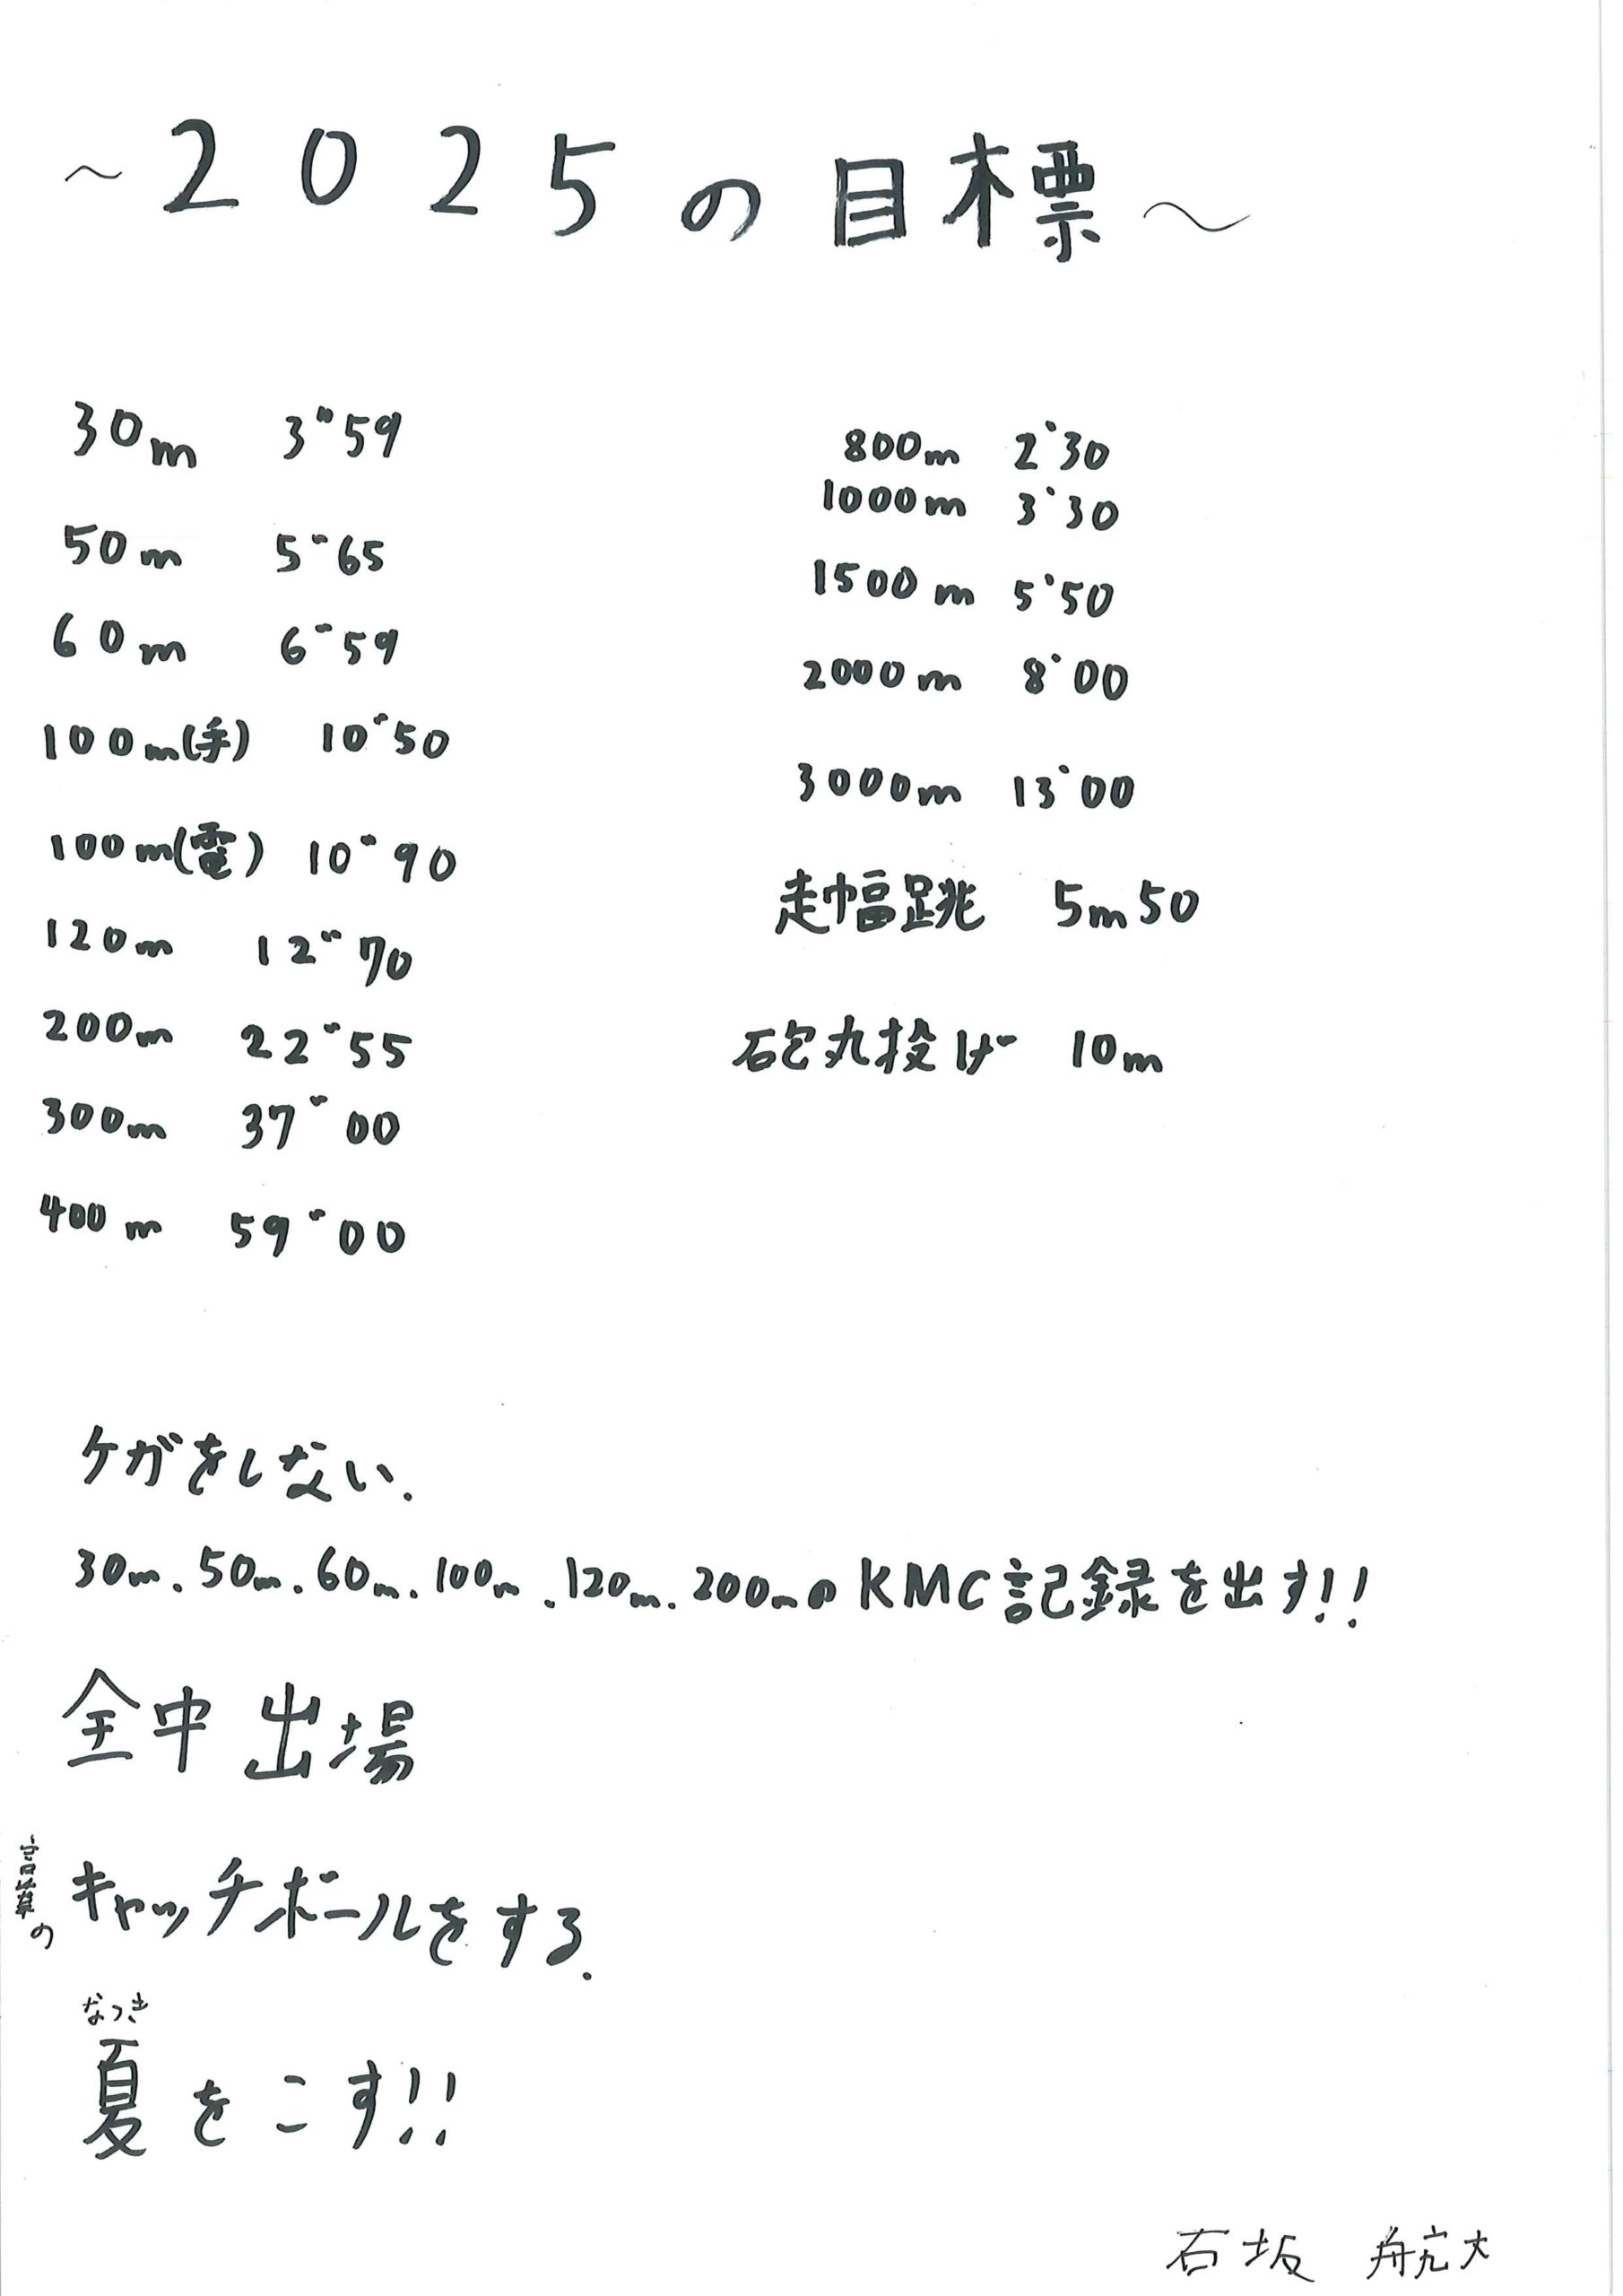 ～2025の目標～
30m 3"59
50m 5"65
60m 6"59
100m(手) 10"50
100m(電) 10"90
120m 12"70
200m 22"55
300m 37"00
400m 59"00
800m 2'30
1000m 3'30
1500m 5'50
2000m 8'00
3000m 13'00
走幅跳 5m50
砲丸投げ 10m
ケガをしない.
30m.50m.60m.100m.120m.200mのKMC記録を出す!!
全中出場
言葉の
キャッチボールをする.
なつき
夏をこす!!
石坂 航大